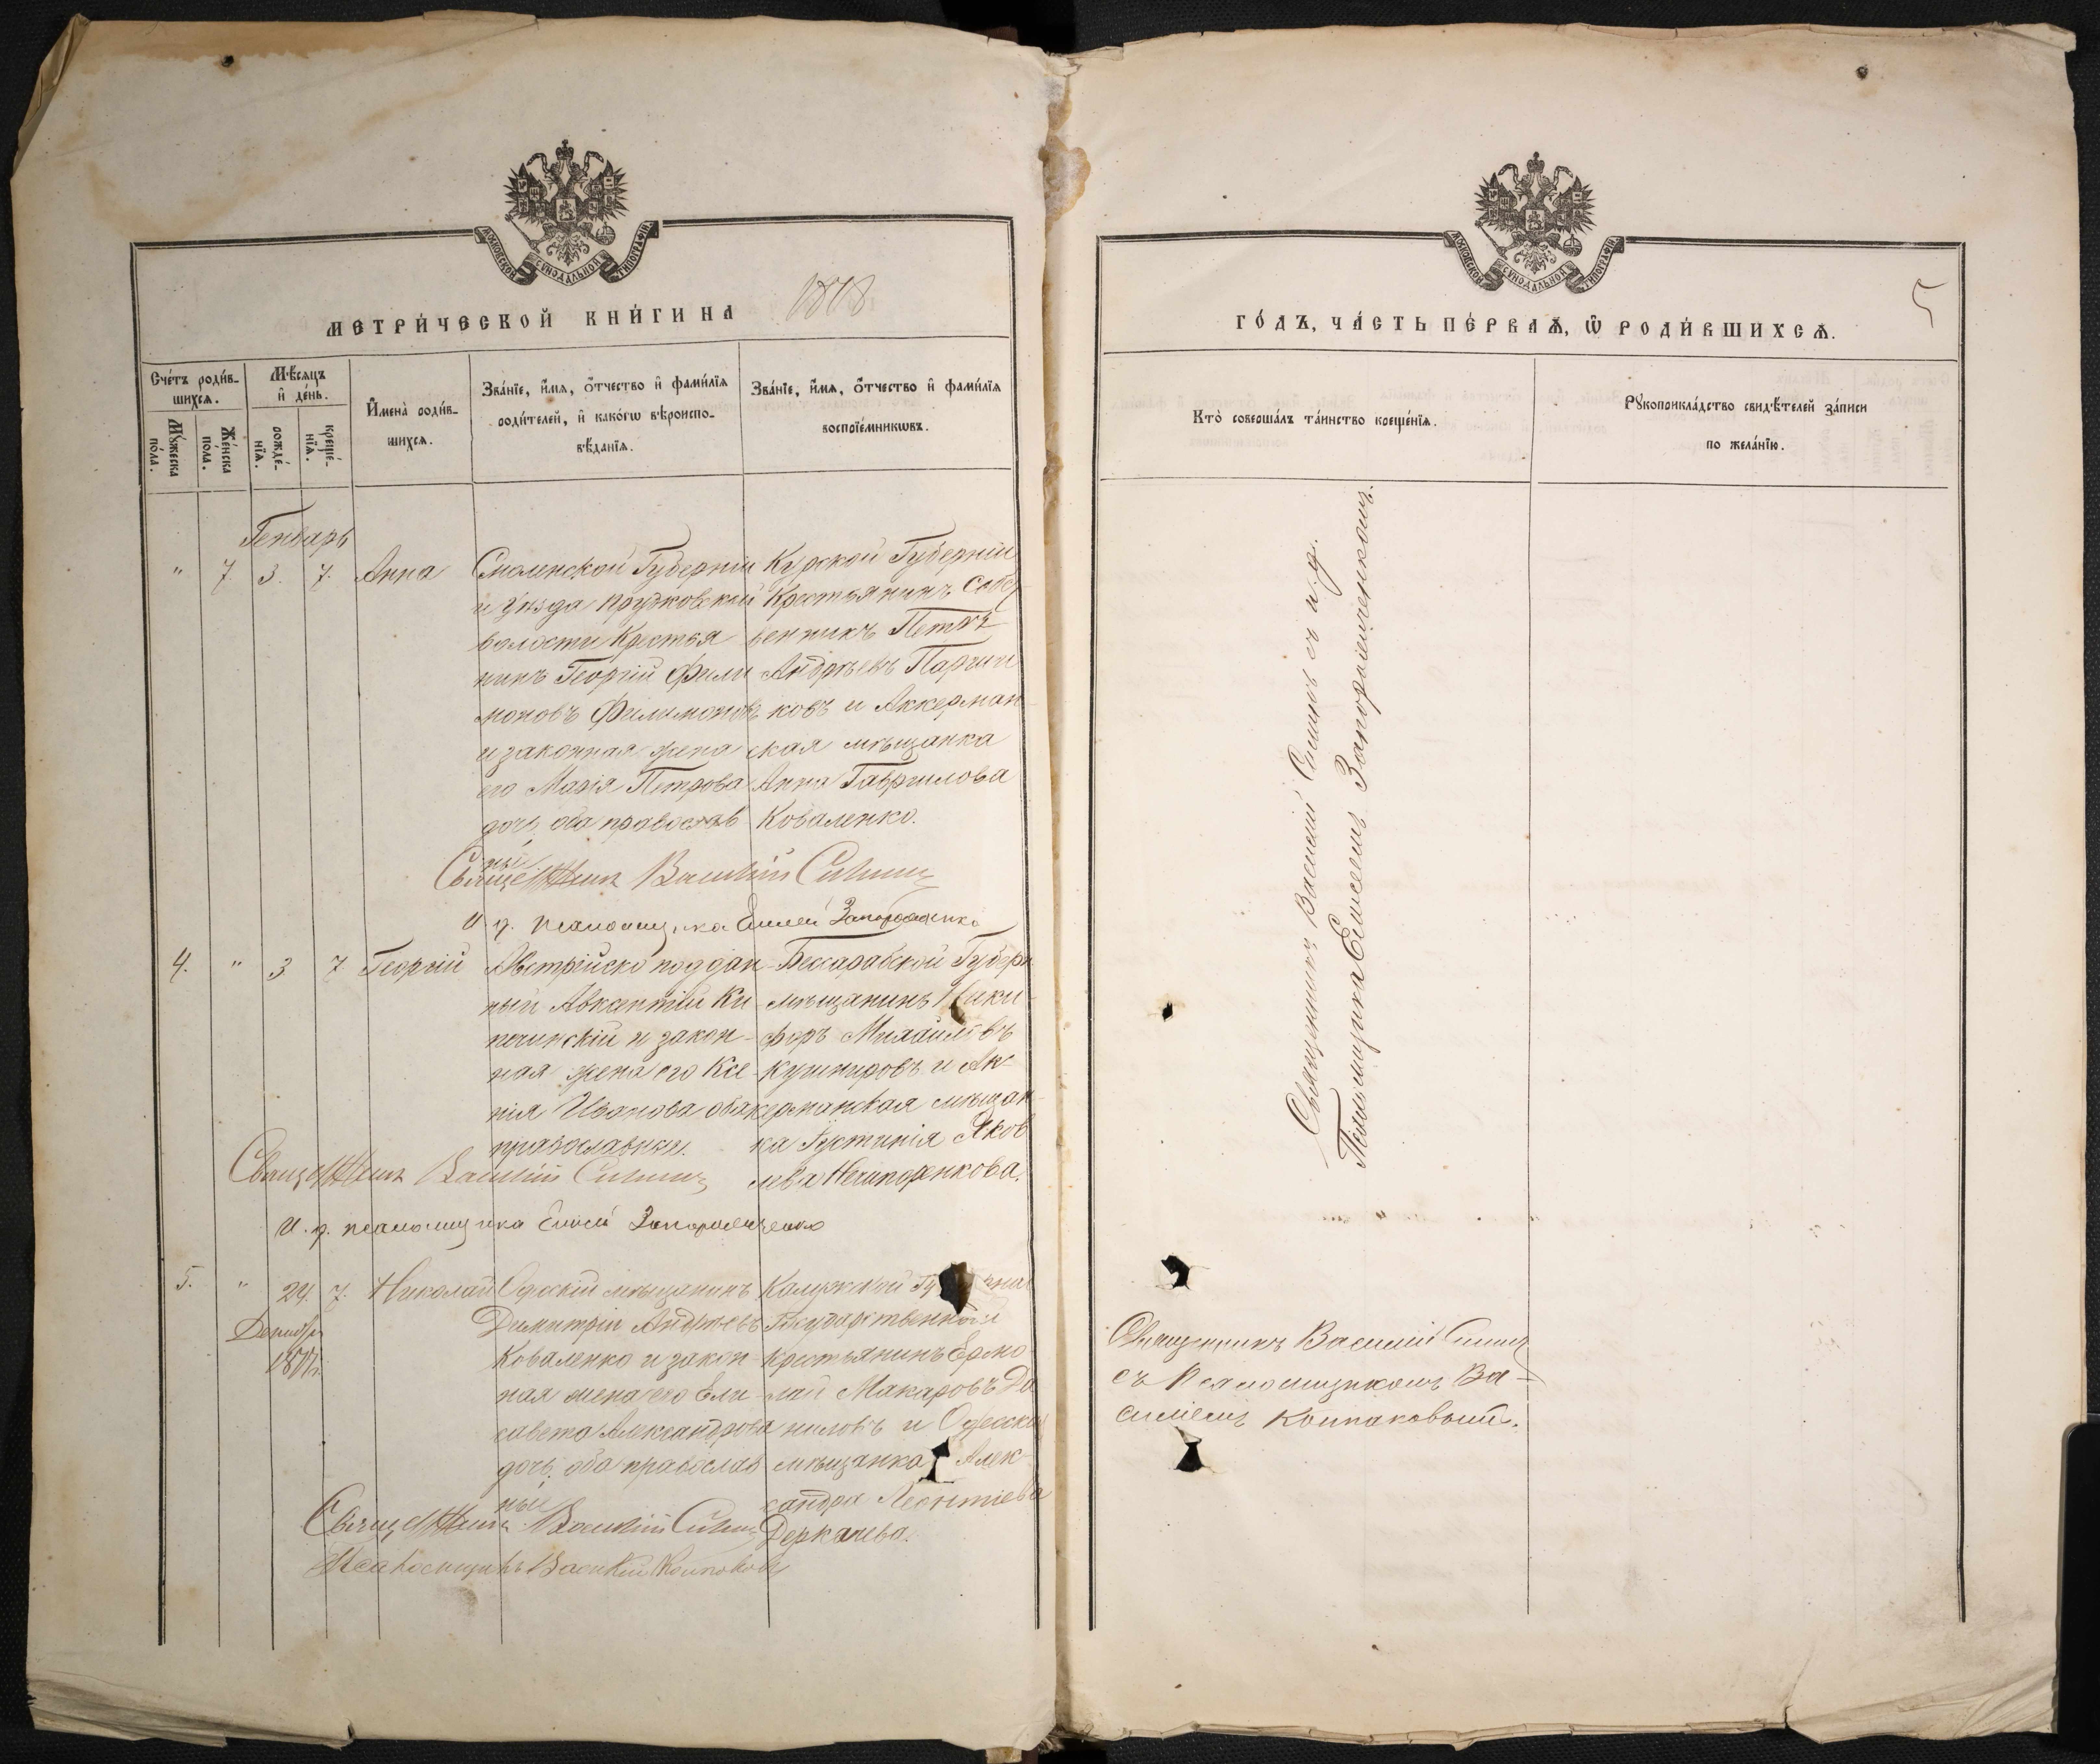 МОСКОВСКОЙ СѴНОДАЛЬНОЙ ТИПОГРАФІИ
МЕТРИ́ЧЕСКОЙ КНИ́ГИ НА 1878
Сче́тъ роди́в-
шихсѧ.
Мꙋ́жеска
по́ла.
Же́нска
по́ла.
Мѣ́сѧцъ
и҆ де́нь.
рожде́-
нїѧ.
креще́-
нїѧ.
И҆мена̀ роди́в-
шихсѧ.
Зва́нїе, и҆́мѧ, ѻ҆́тчество и҆ фами́лїѧ
роди́телей, и҆ како́гѡ вѣроиспо-
вѣ́данїѧ.
Зва́нїе, и҆́мѧ, ѻ҆́тчество и҆ фами́лїѧ
воспрїе́мникѡвъ.
Генварь
" 7 3. 7. Анна
Смоленской Губерніи
и Уѣзда Прудковской
волости Крестья
нинъ Георгій Фили
моновъ Филимоновъ
и законная жена
его Марія Петрова
дочь, оба православ
ные
Курской Губерніи
Крестьянинъ Собст
венникъ Петръ
Андреевъ
ковъ и Аккерман
ская мѣщанка
Анна Гаврилова
Коваленко.
Священникъ Василій
И. д. псаломщика Елисей Запорощенко
4. " 3 7 Георгій
Австрійско поддан
ный Авксентій Ки
нинскій и закон-
ная жена его Ксе
нія Иванова оба
православные.
Бессарабской Губерн.
мѣщанинъ Ники-
форъ Михайловъ
Кушнировъ и Ак-
керманская мѣщан-
ка Іустинія Яков
лева Нечипоренкова.
Священникъ Василій
И. д. псаломщика Елисей Запорощенко
5. " 24. 7. Николай
Декабря
1877г.
Одесскій мѣщанинъ
Димитрій Андреевъ
Коваленко и закон-
ная жена его Ели-
савета Александрова
дочь, оба православ
ные
Калужской
Государственный
крестьянинъ Ермо
лай Макаровъ Да
ниловъ и Одесская
мѣщанка Алек-
сандра Леонтіева
Деркачева.
Священникъ Василій
Псаломщикъ Василій Колпаковъ
МОСКОВСКОЙ СѴНОДАЛЬНОЙ ТИПОГРАФІИ
5
ГО́ДЪ, ЧА́СТЬ ПЕ́РВАѦ, Ѡ҆ РОДИ́ВШИХСѦ.
Кто̀ соверша́лъ та́инство креще́нїѧ.
Рꙋкоприкла́дство свидѣ́телей за́писи
по жела́нїю.
Священникъ Василій съ и. д.
Псаломщика Елисеемъ Запорощенкомъ.
Священникъ Василій
съ Псаломщикомъ Ва-
силіемъ Колпаковымъ.